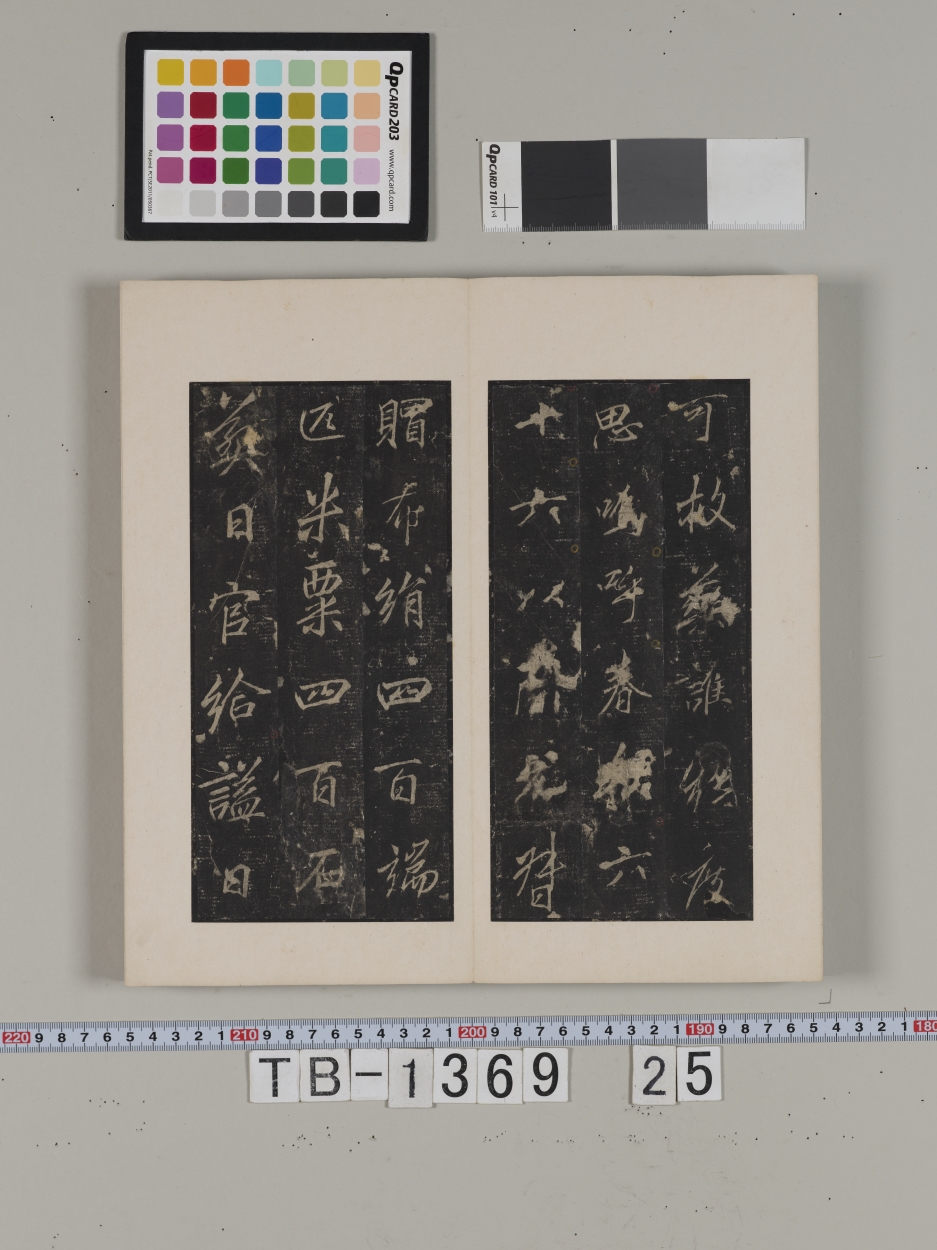 QPCARD 203 www.qpcard.com
QPCARD 101 v4
可故無誰度
思嗚呼春秋六
十六以開元
賵布絹四百端
匹米粟四百石
葬日官給諡曰
220 9 8 7 6 5 4 3 2 1 210 9 8 7 6 5 4 3 2 1 200 9 8 7 6 5 4 3 2 1 190 9 8 7 6 5 4 3 2 1 180
TB-1369 25